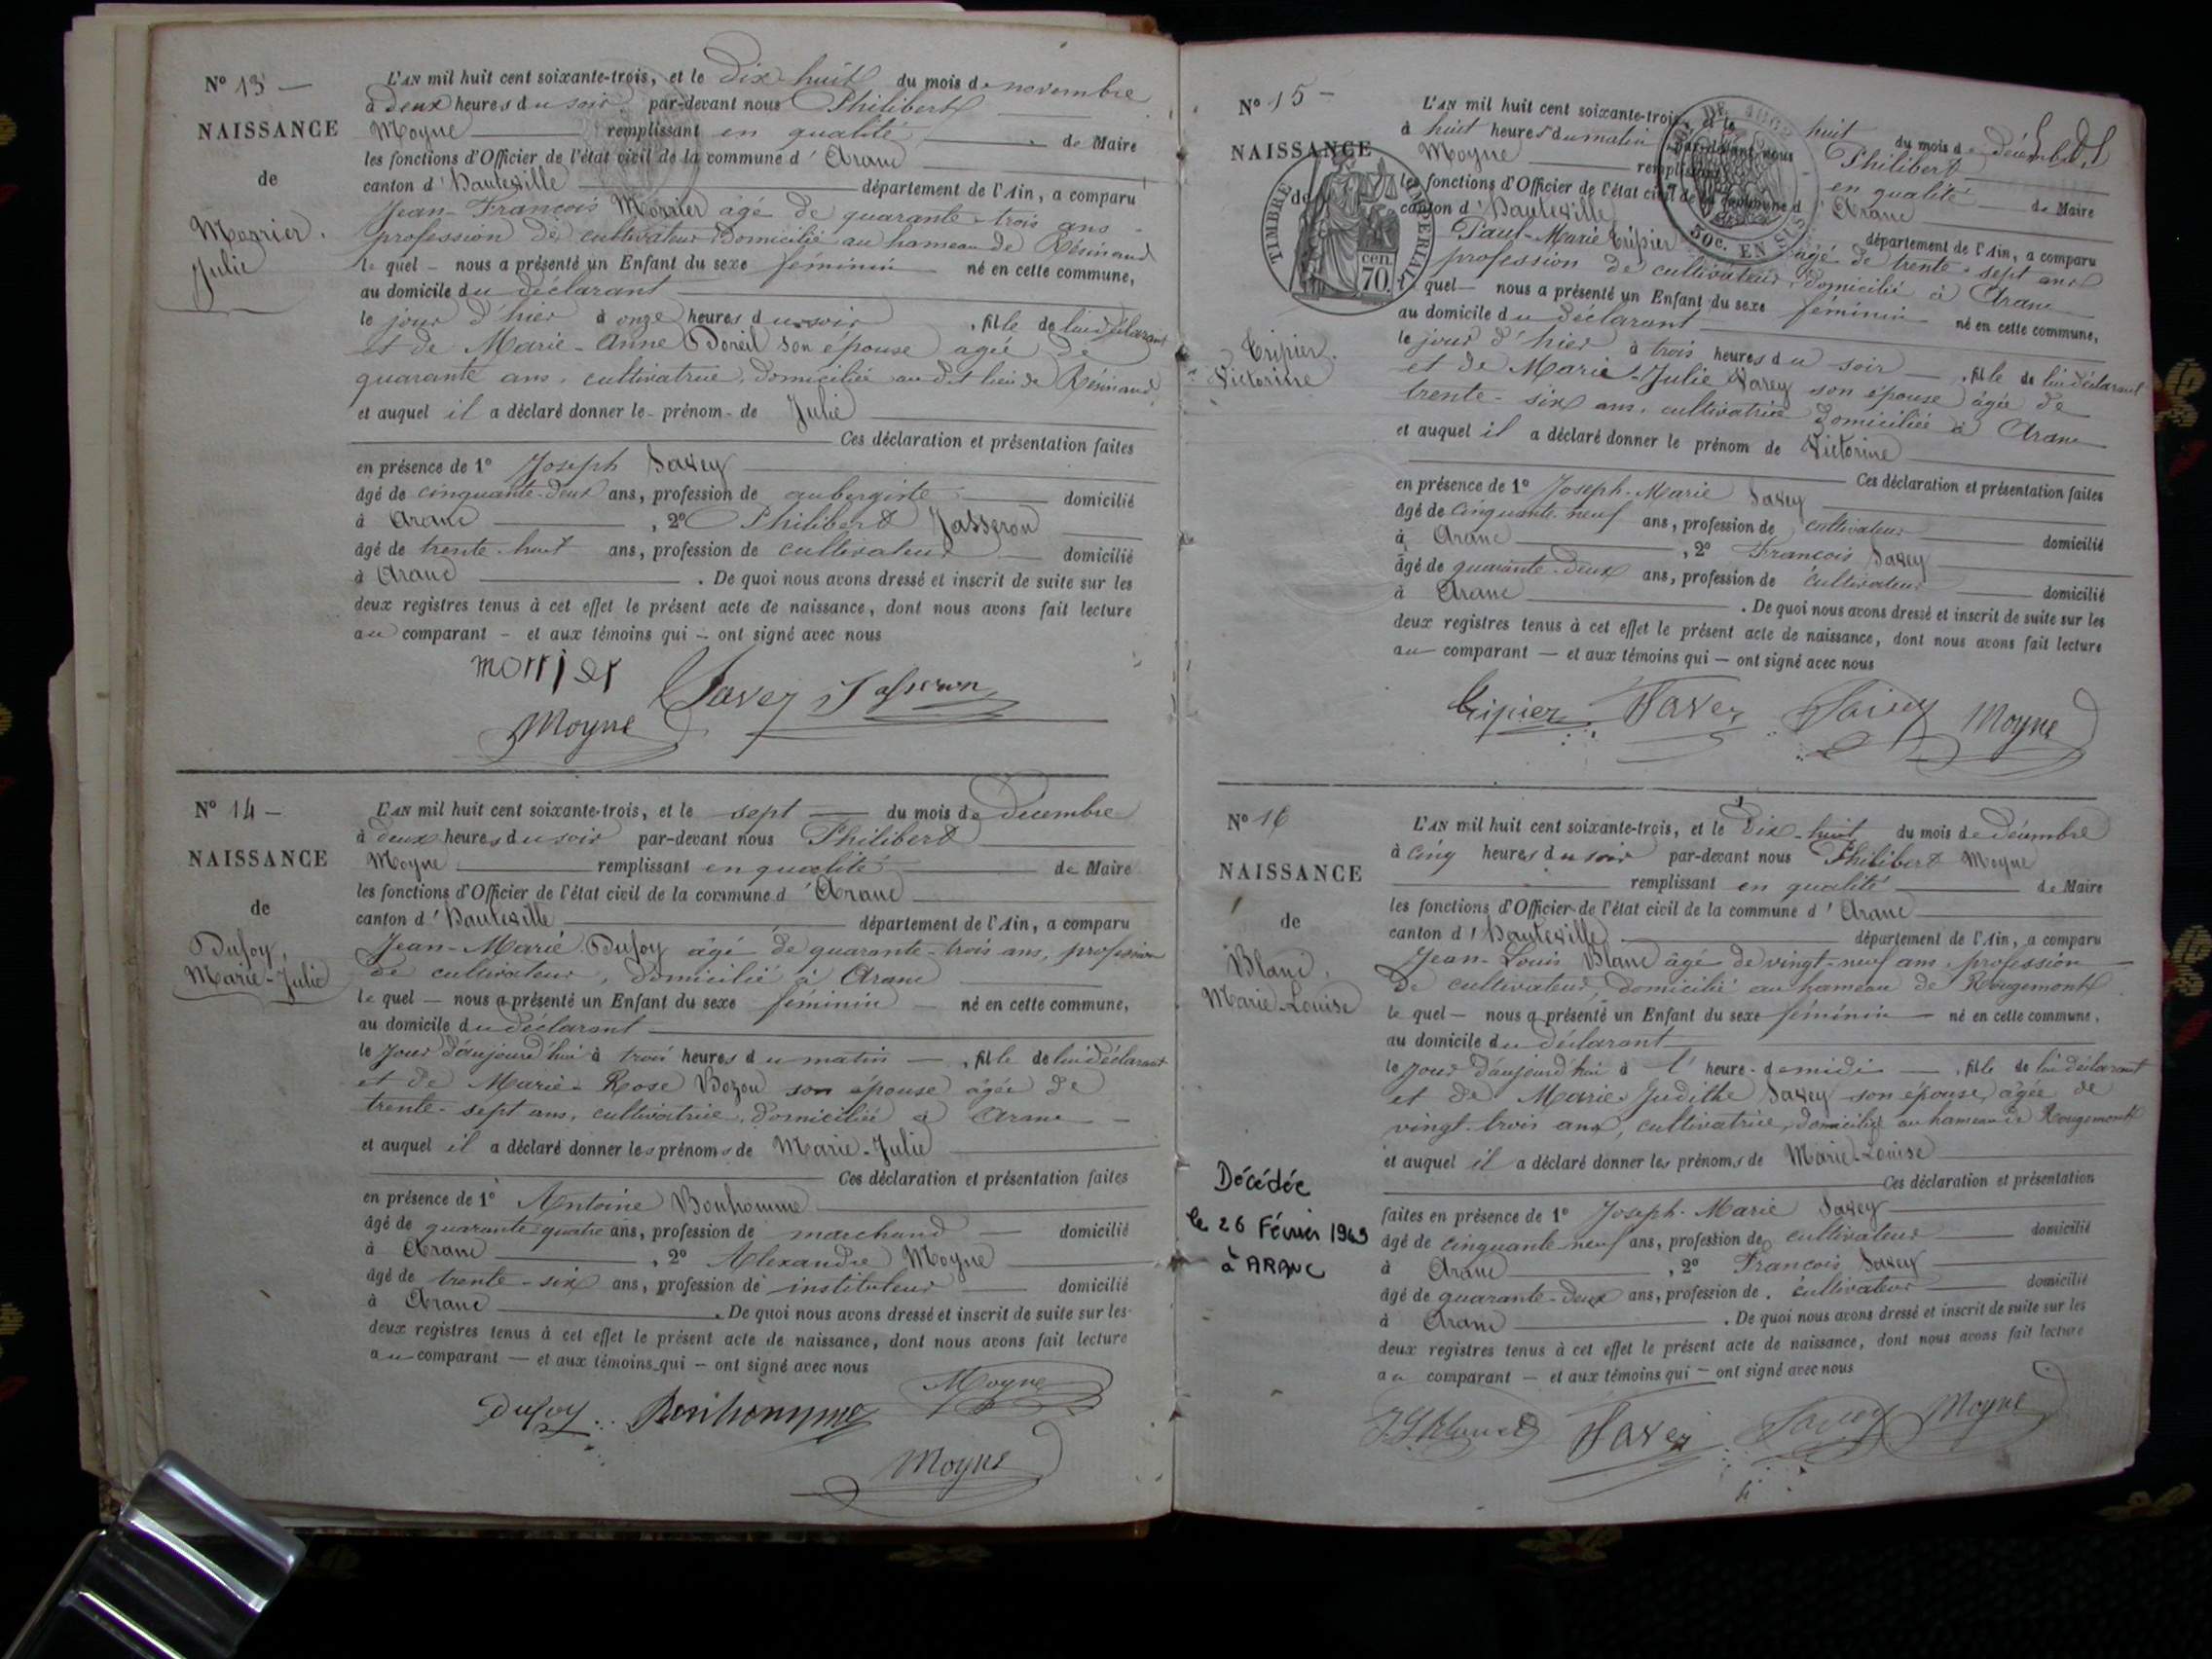 N° 13 —
NAISSANCE
de
Morrier.
Julie
L'AN mil huit cent soixante-trois, et le Dix huit du mois de novembre
à deux heures du soir par-devant nous Philibert
Moyne remplissant en qualité de Maire
les fonctions d'Officier de l'état civil de la commune d' Aranc
canton d' Hauteville département de l'Ain, a comparu
Jean-François Morrier âgé de quarante-trois ans
profession de cultivateur domicilié au hameau de Résinand
le quel — nous a présenté un Enfant du sexe féminin né en cette commune,
au domicile du déclarant
le jour d'hier à onze heures du soir, fille de lui déclarant
et de Marie-Anne son épouse agée de
quarante ans, cultivatrice, domiciliée au dit lieu de Résinand,
et auquel il a déclaré donner le - prénom - de Julie
Ces déclaration et présentation faites
en présence de 1° Joseph Savey
âgé de cinquante-deux ans, profession de aubergiste domicilié
à Aranc, 2° Philibert Jasseron
âgé de trente-huit ans, profession de cultivateur domicilié
à Aranc. De quoi nous avons dressé et inscrit de suite sur les
deux registres tenus à cet effet le présent acte de naissance, dont nous avons fait lecture
au comparant — et aux témoins qui — ont signé avec nous
morrier Savey Jasseron
Moyne
N° 14 —
NAISSANCE
de
Dufoy,
Marie-Julie
L'AN mil huit cent soixante-trois, et le sept du mois de Décembre
à deux heures du soir par-devant nous Philibert
Moyne remplissant en qualité de Maire
les fonctions d'Officier de l'état civil de la commune d' Aranc
canton d' Hauteville département de l'Ain, a comparu
Jean-Marie Dufoy âgé de quarante-trois ans, profession
de cultivateur, domicilié à Aranc
le quel — nous a présenté un Enfant du sexe féminin — né en cette commune,
au domicile du déclarant
le jour d'aujourd'hui à trois heures du matin —, fille de lui déclarant
et de Marie-Rose Bozon son épouse âgée de
trente-sept ans, cultivatrice, domiciliée à Aranc —
et auquel il a déclaré donner les prénoms de Marie-Julie
Ces déclaration et présentation faites
en présence de 1° Antoine Bonhomme
âgé de quarante quatre ans, profession de marchand — domicilié
à Aranc, 2° Alexandre Moyne
âgé de trente-six ans, profession de instituteur domicilié
à Aranc. De quoi nous avons dressé et inscrit de suite sur les
deux registres tenus à cet effet le présent acte de naissance, dont nous avons fait lecture
au comparant — et aux témoins qui — ont signé avec nous
Dufoy Bonhomme Moyne
Moyne
N° 15 —
NAISSANCE
de
TIMBRE IMPERIAL
70 cen.
50c. EN SUS
Tripier.
Victorine
L'AN mil huit cent soixante-trois, et le huit du mois de décembre
à huit heures du matin par-devant nous Philibert
Moyne remplissant en qualité de Maire
les fonctions d'Officier de l'état civil de la commune d' Aranc
canton d' Hauteville département de l'Ain, a comparu
Paul-Marie Tripier âgé de trente-sept ans
profession de cultivateur, domicilié à Aranc
le quel — nous a présenté un Enfant du sexe féminin né en cette commune,
au domicile du déclarant
le jour d'hier à trois heures du soir —, fille de lui déclarant
et de Marie-Julie Savey son épouse âgée de
trente-six ans, cultivatrice domiciliée à Aranc
et auquel il a déclaré donner le prénom de Victorine
Ces déclaration et présentation faites
en présence de 1° Joseph-Marie Savey
âgé de cinquante-neuf ans, profession de cultivateur domicilié
à Aranc, 2° François Savey
âgé de quarante-deux ans, profession de cultivateur domicilié
à Aranc. De quoi nous avons dressé et inscrit de suite sur les
deux registres tenus à cet effet le présent acte de naissance, dont nous avons fait lecture
au comparant — et aux témoins qui — ont signé avec nous
Tripier Savey Savey Moyne
N° 16
NAISSANCE
de
Blanc,
Marie-Louise
Décédée
le 26 Février 1949
à ARANC
L'AN mil huit cent soixante-trois, et le Dix-huit du mois de décembre
à cinq heures du soir par-devant nous Philibert Moyne
remplissant en qualité de Maire
les fonctions d'Officier de l'état civil de la commune d' Aranc
canton d' Hauteville département de l'Ain, a comparu
Jean-Louis Blanc âgé de vingt-neuf ans, profession
de cultivateur, domicilié au hameau de Rougemont
le quel — nous a présenté un Enfant du sexe féminin — né en cette commune,
au domicile du déclarant
le jour d'aujourd'hui à l' heure de midi —, fille de lui déclarant
et de Marie Judithe Savey son épouse, âgée de
vingt-trois ans, cultivatrice, domiciliée au hameau de Rougemont
et auquel il a déclaré donner les prénoms de Marie-Louise
Ces déclaration et présentation
faites en présence de 1° Joseph-Marie Savey
âgé de cinquante neuf ans, profession de cultivateur domicilié
à Aranc, 2° François Savey
âgé de quarante-deux ans, profession de cultivateur domicilié
à Aranc. De quoi nous avons dressé et inscrit de suite sur les
deux registres tenus à cet effet le présent acte de naissance, dont nous avons fait lecture
au comparant — et aux témoins qui — ont signé avec nous
J L Blanc Savey Savey Moyne